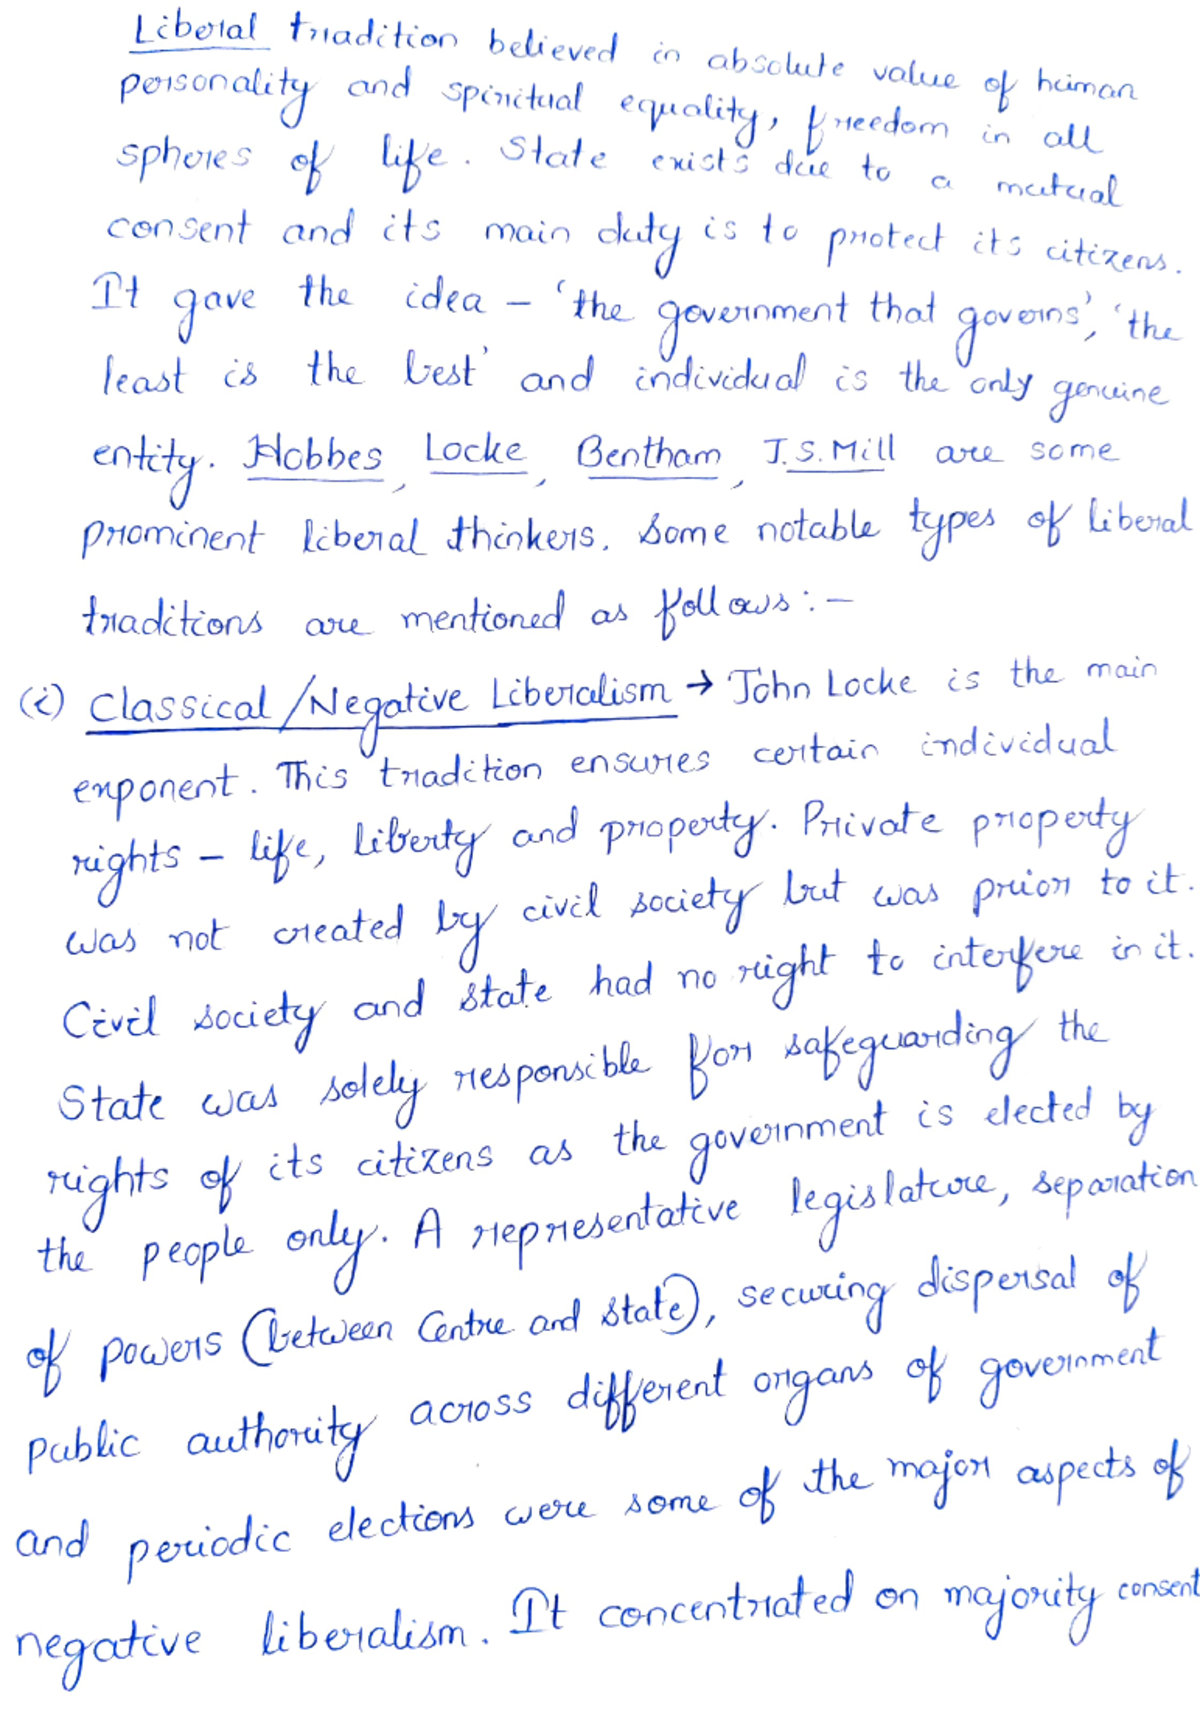 Liberal tradition believed in absolute value of human
personality and spiritual equality, freedom in all
spheres of life. State exists due to a mutual
consent and its main duty is to protect its citizens.
It gave the idea – 'the government that governs', 'the
least is the best' and individual is the only genuine
entity. Hobbes, Locke, Bentham, J.S. Mill are some
prominent liberal thinkers. Some notable types of liberal
traditions are mentioned as follows :–
(i) Classical/Negative Liberalism → John Locke is the main
exponent. This tradition ensures certain individual
rights – life, liberty and property. Private property
was not created by civil society but was prior to it.
Civil society and state had no right to interfere in it.
State was solely responsible for safeguarding the
rights of its citizens as the government is elected by
the people only. A representative legislature, separation
of powers (between Centre and State), securing dispersal of
public authority across different organs of government
and periodic elections were some of the major aspects of
negative liberalism. It concentrated on majority consent